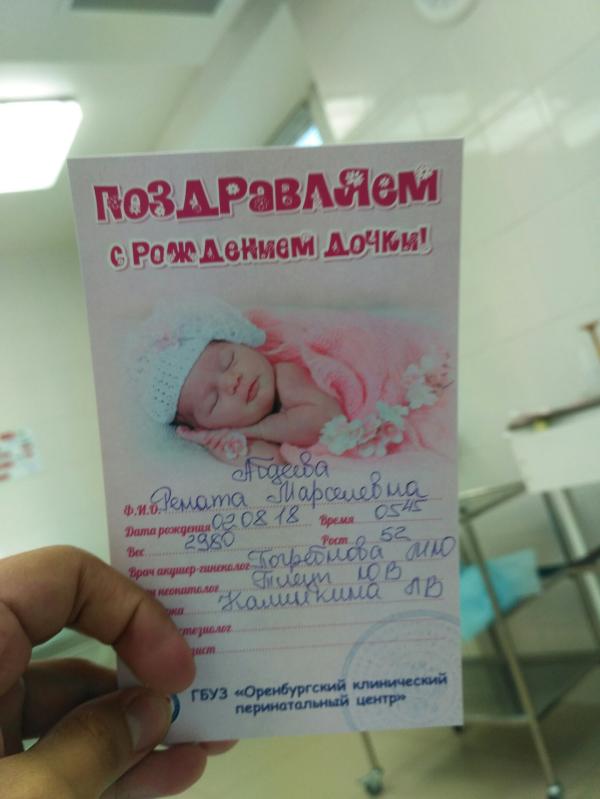 Поздравляем
с рождением дочки!
Абдеева
Ф.И.О. Рената Марселевна
Дата рождения 02 08 18 Время 05 45
Вес 2980 Рост 52
Врач акушер-гинеколог МЮ
неонатолог ЮВ
ка Калинкина ЛВ
стезиолог
ист
ГБУЗ «Оренбургский клинический
перинатальный центр»